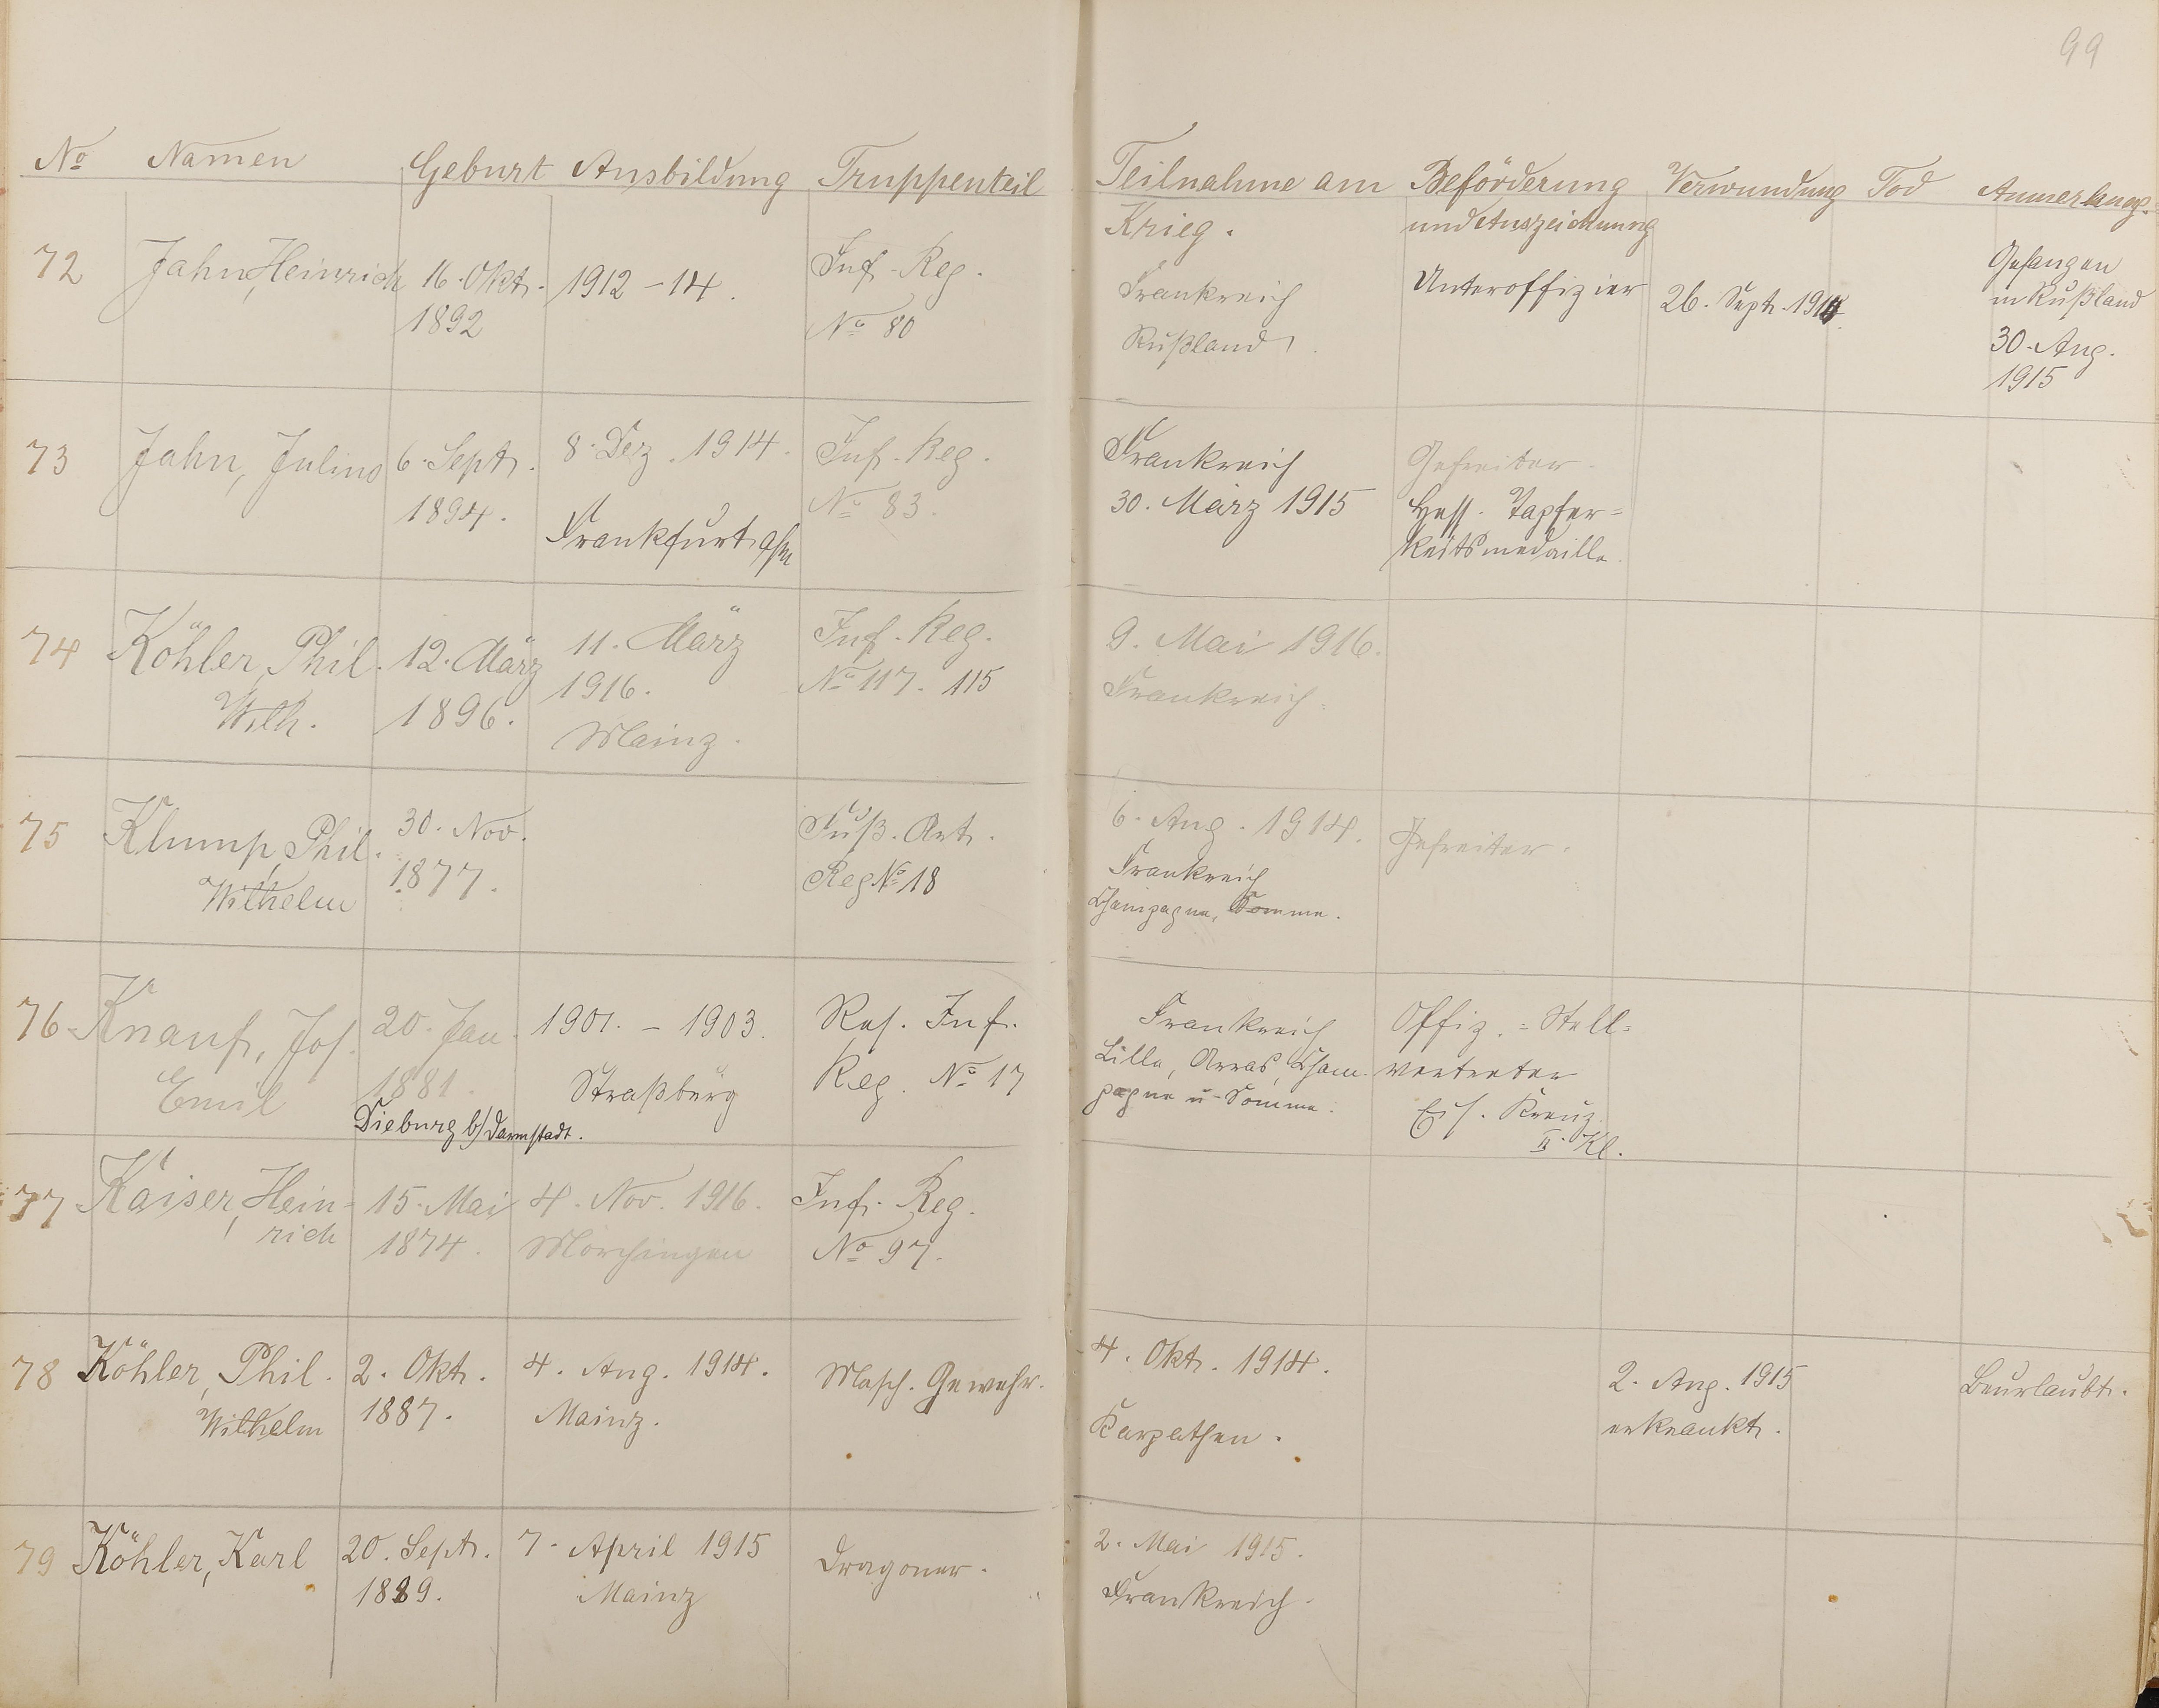 99
No Namen Geburt Ausbildung Truppenteil Teilnahme am Krieg. Beförderung und Auszeichnung Verwundung Tod Anmerkung.
72 Jahn, Heinrich
16. Okt.
1892
1912-14.
Inf.-Reg.
No 80
Frankreich
Rußland
Unteroffizier
26. Sept. 1914
Gefangen
in Rußland
30. Aug.
1915
73 Jahn, Julius
6. Sept.
1894.
8. Dez. 1914.
Frankfurt a/M
Inf.-Reg.
No 83.
Frankreich
30. März 1915
Gefreiter.
Hess. Tapfer=
keitsmedaille.
74 Köhler, Phil.
Wilh.
12. März
1896.
11. März
1916.
Mainz.
Inf.-Reg.
No 117. 115
9. Mai 1916.
Frankreich.
75 Klump, Phil.
Wilhelm
30. Nov.
1877.
Fuß. Art.
Reg No 18
6. Aug. 1914.
Frankreich
Champagne, Somme.
Gefreiter.
76 Knauf, Jos.
Emil
20. Jan.
1881.
Dieburg b/ Darmstadt.
1901. - 1903.
Straßburg
Res. Inf.
Reg. No 17
Frankreich
Lille, Arras, Cham-
pagne u. Somme.
Offiz.=Stell=
vertreter
Eis. Kreuz
II. Kl.
77 Kaiser, Hein-
rich
15. Mai
1874.
4. Nov. 1916.
Mörchingen
Inf. Reg.
No 97.
78 Köhler, Phil.
Wilhelm
2. Okt.
1887.
4. Aug. 1914.
Mainz.
Masch. Gewehr.
4. Okt. 1914.
Karpathen.
2. Aug. 1915
erkrankt.
Beurlaubt.
79 Köhler, Karl
20. Sept.
1889.
7. April 1915
Mainz
Dragoner.
2. Mai 1915.
Frankreich.